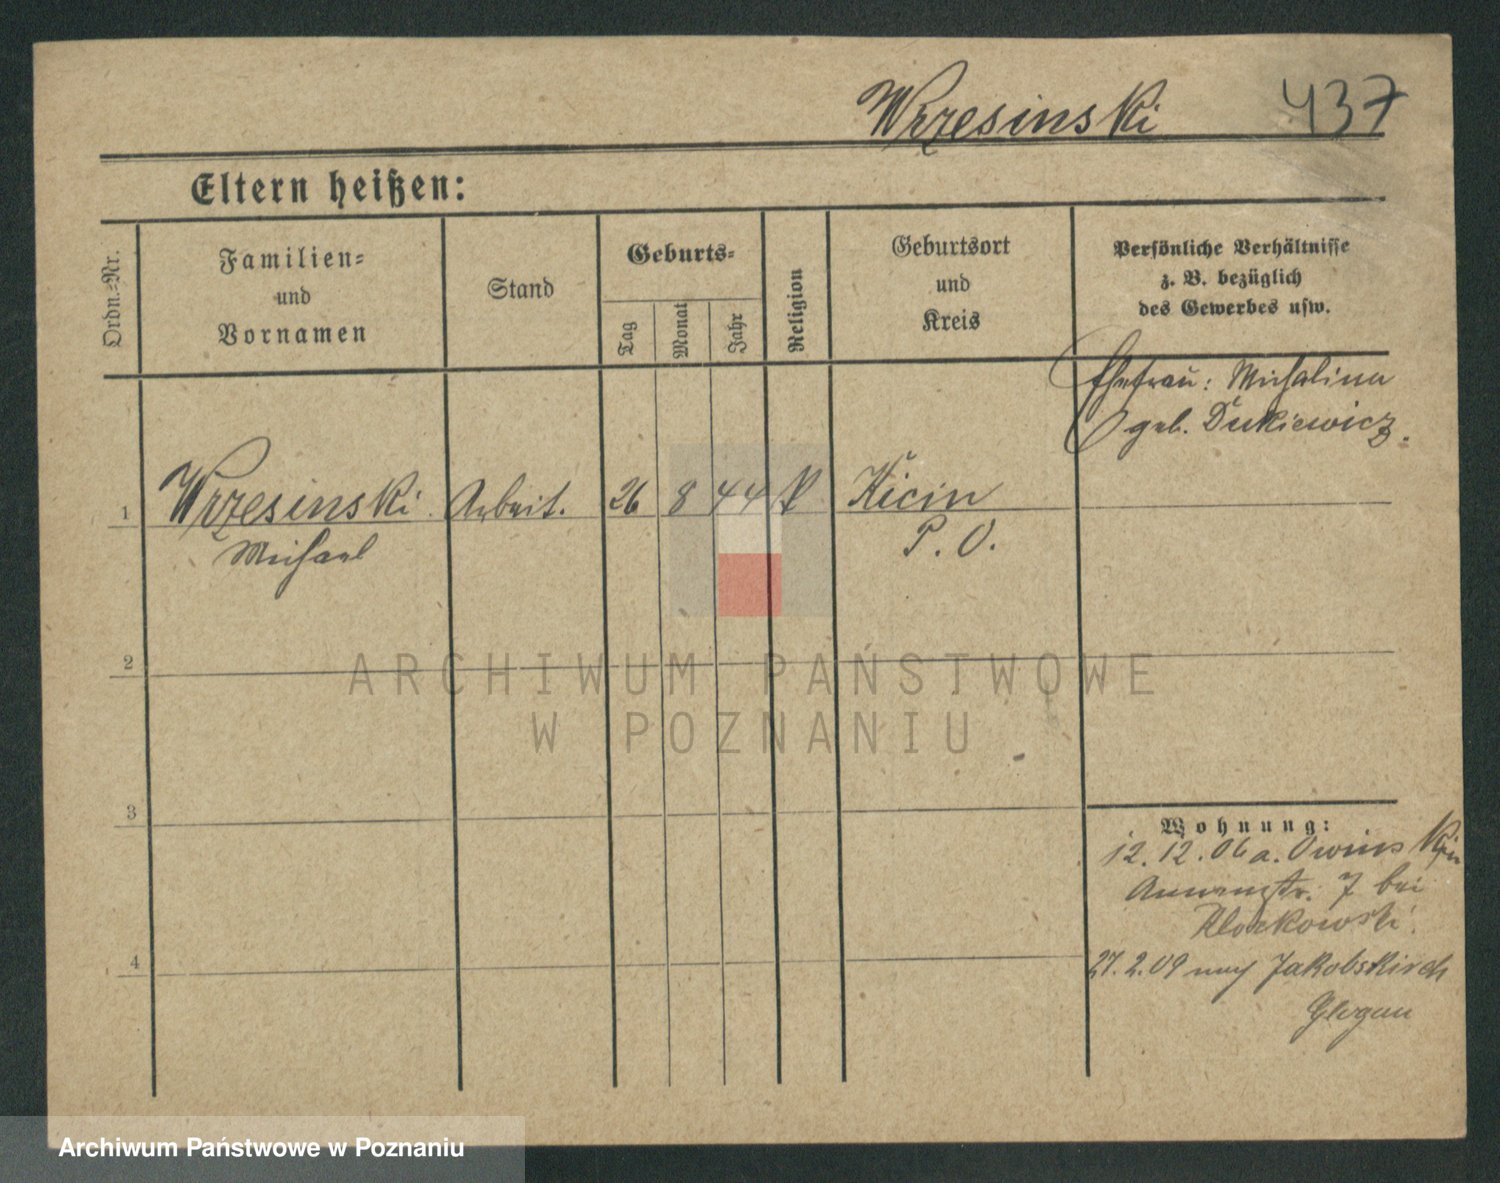 Wrzesinski 437
Eltern heißen:
Ordn.-Nr.
Familien-
und
Vornamen
Stand
Geburts-
Tag
Monat
Jahr
Religion
Geburtsort
und
Kreis
Persönliche Verhältnisse
z. B. bezüglich
des Gewerbes usw.
Ehefrau: Michalina
geb. Dukiewicz.
1 Wrzesinski Arbeit. 26 8 44 k Kicin
Michael P. O.
2
3
4
ARCHIWUM PAŃSTWOWE
W POZNANIU
Wohnung:
12.12.06 a. Owinsk
Annenstr. 7 bei
27.2.09 nach Jakobskirch
Glogau
Archiwum Państwowe w Poznaniu